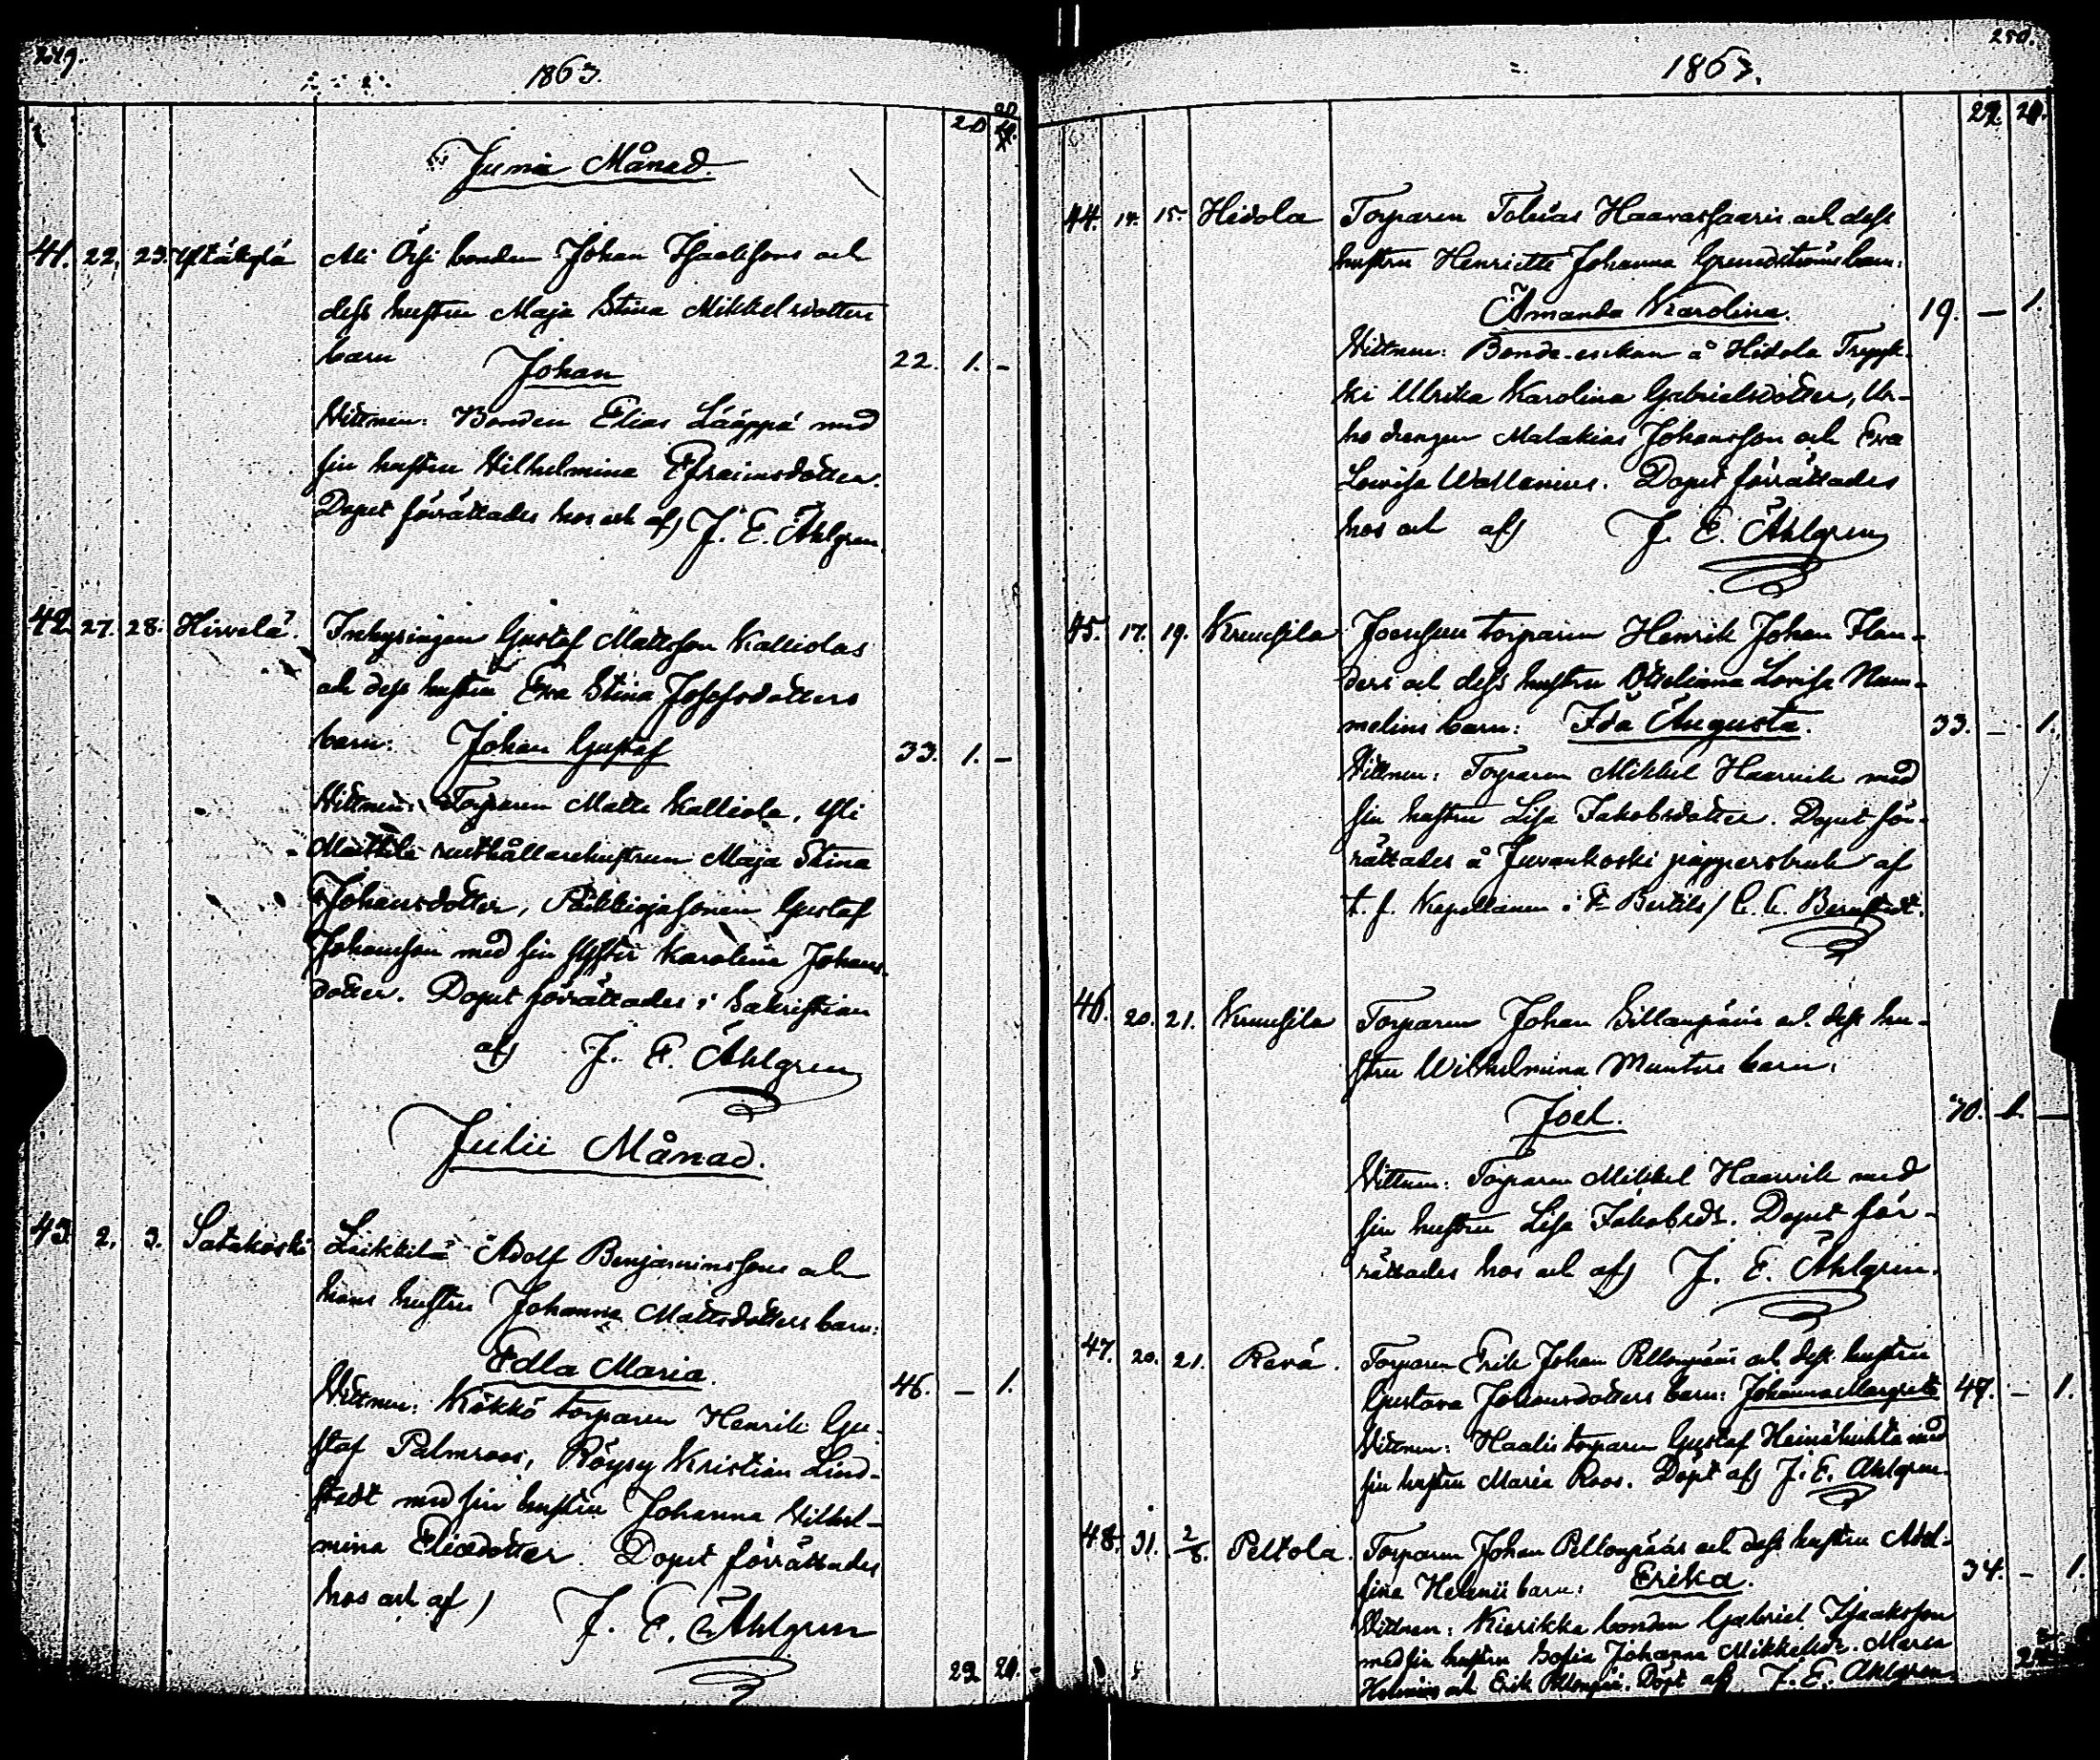 249.
1863.
20 20
Junii Månad.
41. 22. 23. Yliskylä Ali Össi bonden Johan Isaakssons och
dess hustru Maja Stina Mikkelsdotters
barn Johan 22. 1. –
Vittnen: Bonden Elias Lääppä med
sin hustru Vilhelmina Efraimsdotter.
Dopet förrättades hos och af) J. E. Ahlgren.
42. 27. 28. Hirvelä. Inhysingen Gustaf Mattsson Kalliolas
och dess hustru Eva Stina Josefsdotters
barn: Johan Gustaf 33. 1. –
Vittnen: Torparen Matts Kalliola, Yli
Mattila rusthållarehustrun Maja Stina
Johansdotter, sonen Gustaf
Johansson med sin syster Karolina Johans-
dotter. Dopet förrättades i Sakristian
af) J. E. Ahlgren
Julii Månad.
43. 2. 3. Satakoski Adolf Benjaminssons och
hans hustru Johanna Mattsdotters barn:
Edla Maria. 46. – 1.
Vittnen: Kökkö torparen Henrik Gu-
staf Palmroos, Röysy Kristian Lind-
stedt med sin hustru Johanna Vilhel-
mina Eliædotter. Dopet förrättades
hos och af) J. E. Ahlgren
22 20.
250.
1863.
22. 20.
44. 14. 15. Hidola Torparen Tobias Haavassaaris och dess
hustru Henriette Johanna Grundströms barn:
Amanda Karolina. 19. – 1.
Vittnen: Bonde-enkan å Hidola Trepyk-
ki Ulrika Karolina Gabrielsdotter, Ur-
ho drengen Malakias Johansson och Eva
Lovisa Wallenius. Dopet förrättades
hos och af) J. E. Ahlgren
45. 17. 19. Kruusila Joensuu torparen Henrik Johan Flan-
ders och dess hustru Otteliana Lovisa Num-
melins barn: Ida Augusta. 33. – 1.
Vittnen: Torparen Mikkel Haarvik med
sin hustru Lisa Jakobsdotter. Dopet för-
rättades å Juvankoski pappersbruk af
t. f. Kapellanen i F. Bertils / C. C. Bernstedt.
46. 20. 21. Kruusila Torparen Johan Sillanpääs och dess hu-
stru Wilhelmina Munters barn:
Joel. 70. 1. –
Vittnen: Torparen Mikkel Haarvik med
sin hustru Lisa Jakobsdr. Dopet för-
rättades hos och af) J. E. Ahlgren.
47. 20. 21. Revä. Torparen Erik Johan Pellonpääs och dess hustru
Gustava Johansdotters barn: Johanna Margreta 47. – 1.
Vittnen: Haalis torparen Gustaf Heinähuhta med
sin hustru Maria Roos. Döpt af) J. E. Ahlgren.
48. 31. 2/8. Peltola. Torparen Johan Pellonpääs och dess hustru Adol-
fina Helenii barn: Erika. 34. – 1.
Vittnen: Kierikka bonden Gabriel Isaaksson
med sin hustru Sofia Johanna Mikkelsdr. Maria
Helenius och Erik Pellonpää. Döpt af) J. E. Ahlgren.